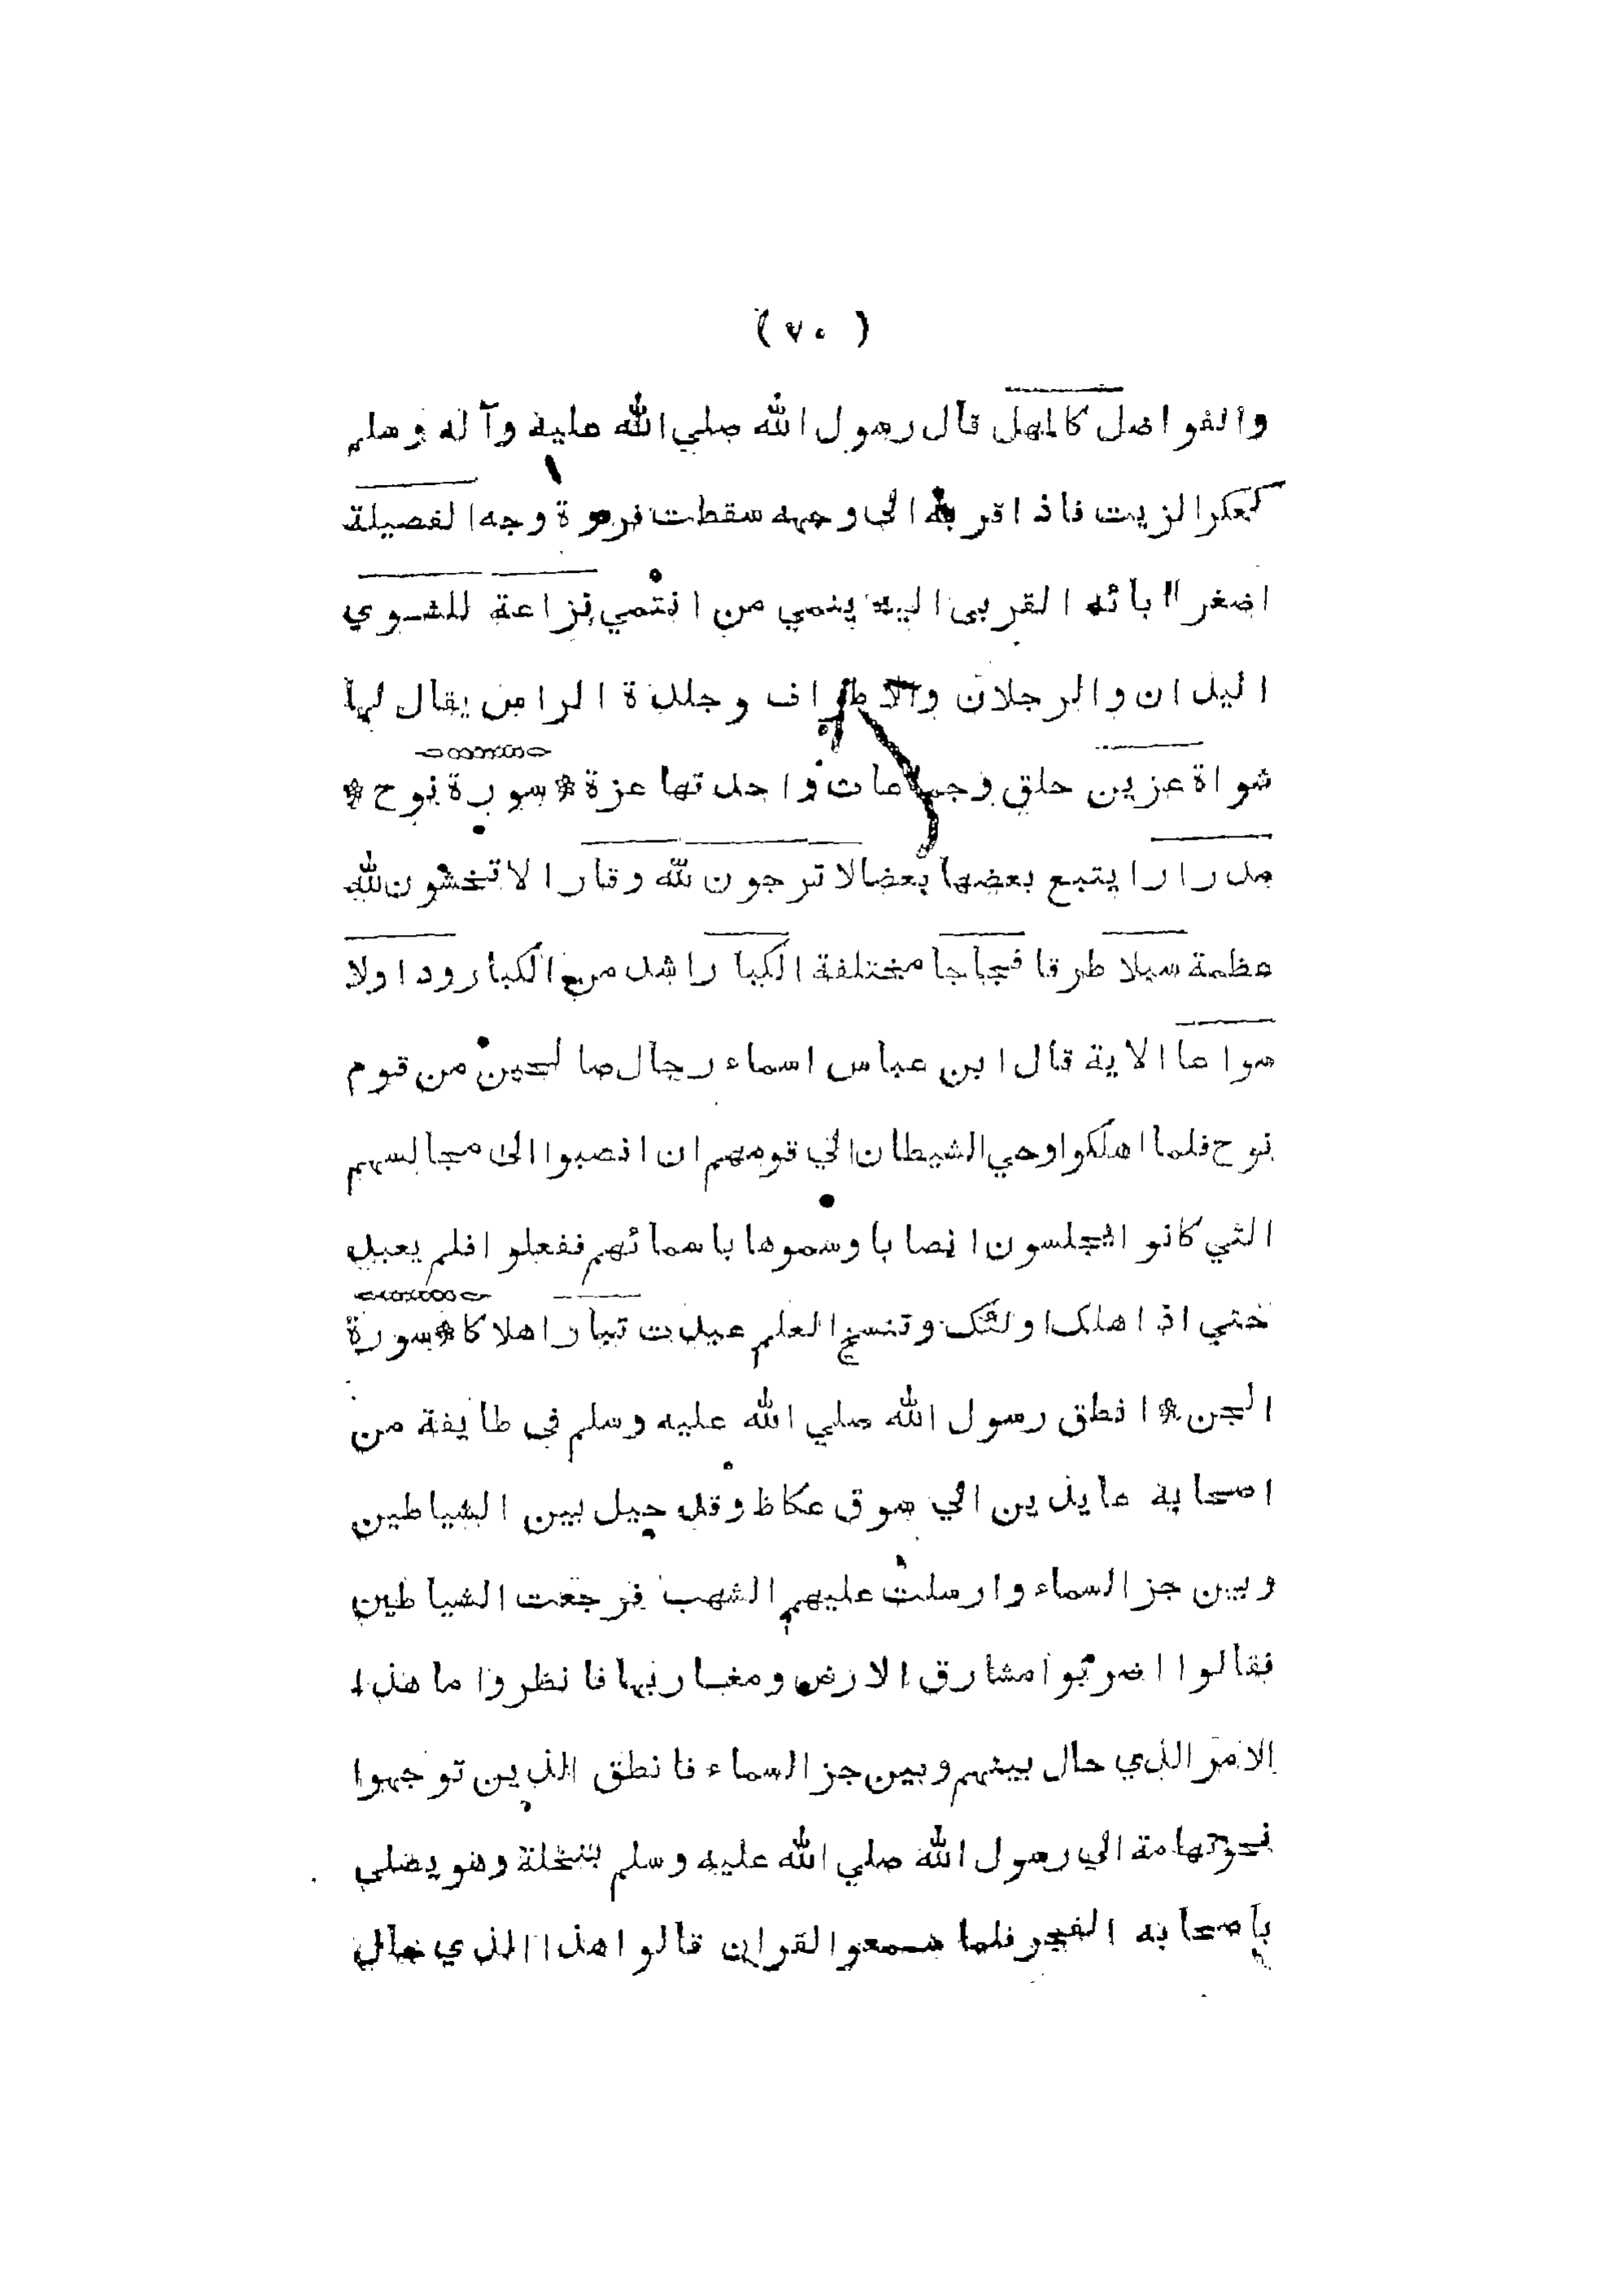 ( ٧٠ )
والفواضل كالمهل قال رسول الله صلي الله عليه وآله وسلم
كعكر الزيت فاذا قربه الى وجهه سقطت فروة وجهه الفصيلة
اصغر ابائه القربى اليه ينمي من انتمي نزاعة للشوي
اليدان والرجلان والاطراف وجلدة الراس يقال لها
شواة عزين حلق وجماعات واحدتها عزة * سورة نوح *
مدرارا يتبع بعضها بعضا لا ترجون لله وقارا لا تخشون لله
عظمة سبلا طرقا فجاجا مختلفة الكبار اشد من الكبار ودا ولا
سواعا الاية قال ابن عباس اسماء رجال صالحين من قوم
نوح فلما اهلكوا وحي الشيطان الي قومهم ان انصبوا الى مجالسهم
التي كانوا يجلسون انصابا وسموها باسمائهم ففعلوا فلم يعبد
حتي اذا هلك اولئك وتنسخ العلم عبدت تبارا هلاكا * سورة
الجن * انطق رسول الله صلي الله عليه وسلم في طايفة من
اصحابه عايدين الي سوق عكاظ وقد حيل بين الشياطين
وبين جز السماء وارسلت عليهم الشهب فرجعت الشياطين
فقالوا اضربوا مشارق الارض ومغاربها فانظروا ما هذا
الامر الذي حال بينهم وبين جز السماء فانطق الذين توجهوا
نحو تهامة الي رسول الله صلي الله عليه وسلم بنخلة وهو يصلي
باصحابه الفجر فلما سمعوا القران قالوا هذا الذي حال